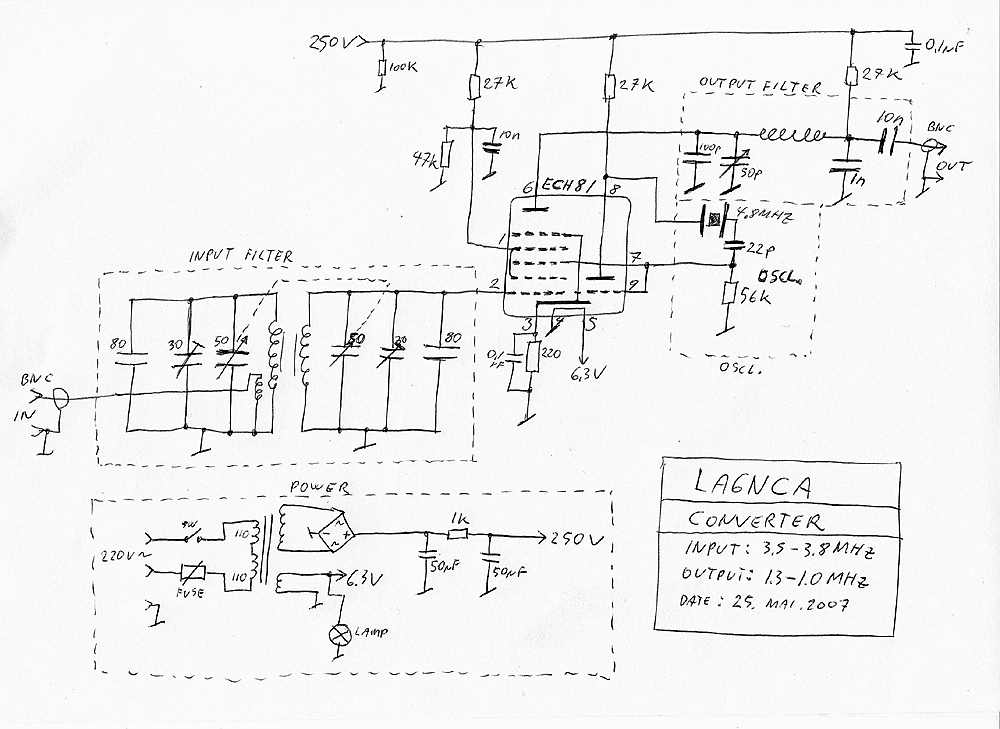 250V
100K
27K
47K
10n
27K
27K
0,1µF
OUTPUT FILTER
100p
50p
10n
BNC
OUT
1n
6 ECH81 8
1
7
2
9
3 4 5
4.8MHZ
22p
OSCL.
56K
OSCL.
0,1µF
220
6,3V
INPUT FILTER
80
30
50
50
80
BNC
IN
POWER
SW
220V~
FUSE
110
110
~
- +
~
1k
250V
50µF
50µF
6.3V
LAMP
LA6NCA
CONVERTER
INPUT: 3.5-3.8MHZ
OUTPUT: 1.3-1.0MHZ
DATE: 25. MAI. 2007